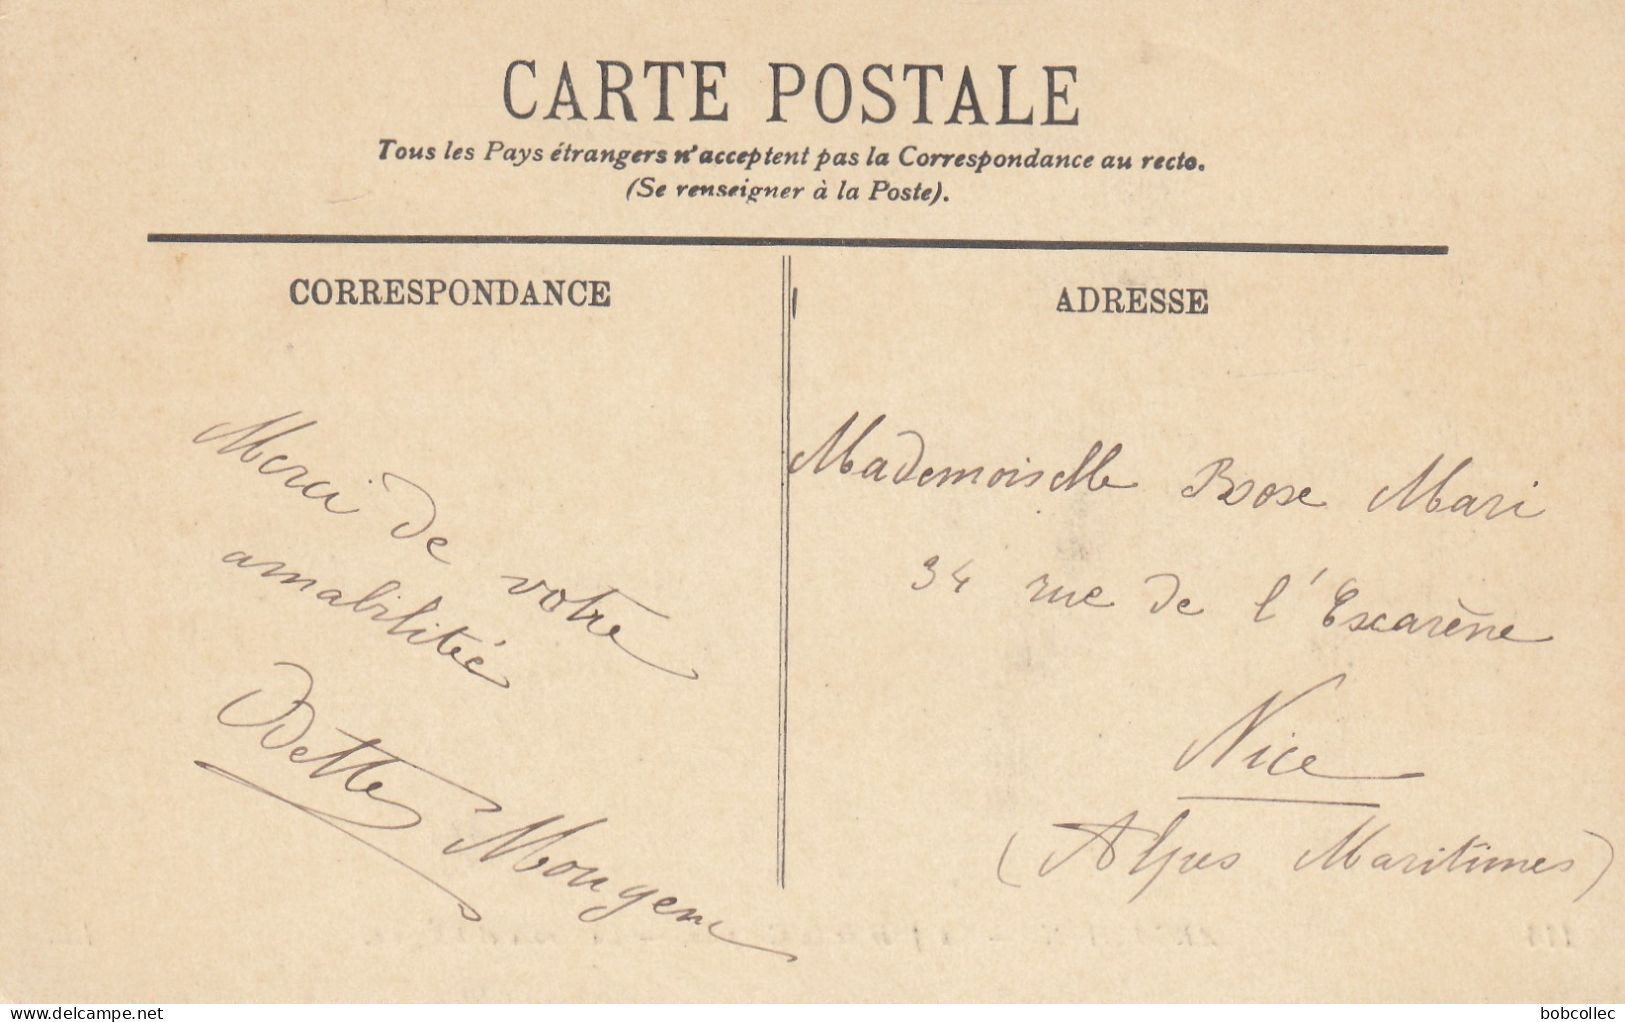 CARTE POSTALE
Tous les Pays étrangers n'acceptent pas la Correspondance au recto.
(Se renseigner à la Poste).
CORRESPONDANCE
ADRESSE
Merci de votre
amabilité
Odette
Mademoiselle Rose Mari
34 rue de l'Escarène
Nice
(Alpes Maritimes)
delcampe.net
bobcollec